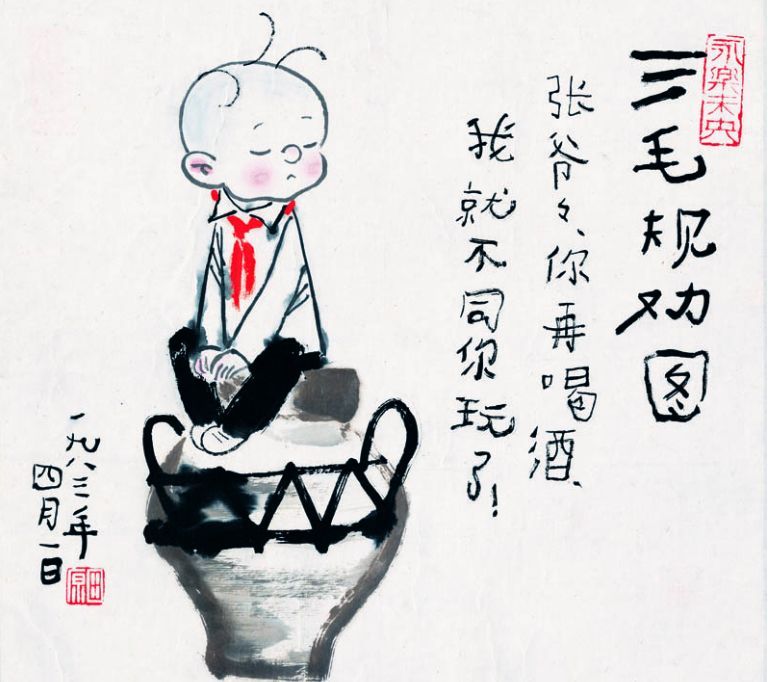 永樂未央
三毛规劝图
张爷々、你再喝酒、
我就不同你玩了！
一九八三年
四月一日